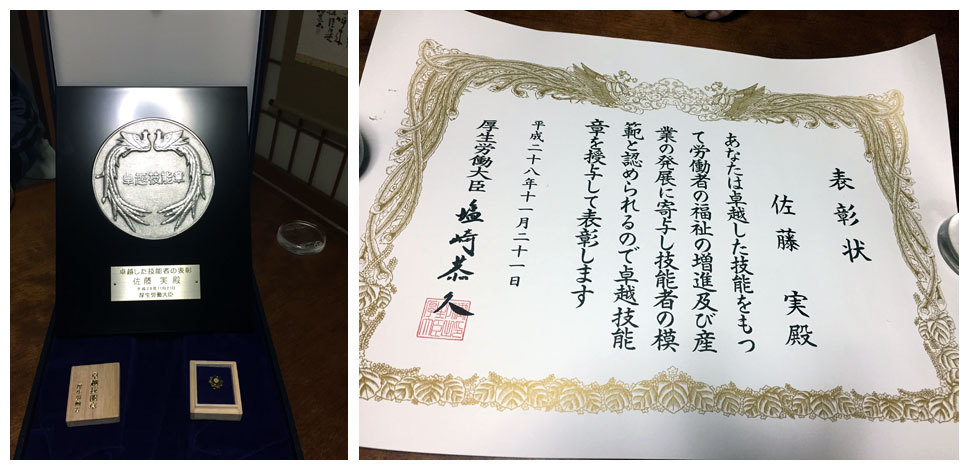 卓越技能章
卓越した技能者の表彰
佐藤 実 殿
平成28年11月21日
厚生労働大臣
卓越技能章
厚生労働省
表彰状
佐藤 実 殿
あなたは卓越した技能をもつ
て労働者の福祉の増進及び産
業の発展に寄与し技能者の模
範と認められるので卓越技能
章を授与して表彰します
平成二十八年十一月二十一日
厚生労働大臣 塩崎恭久